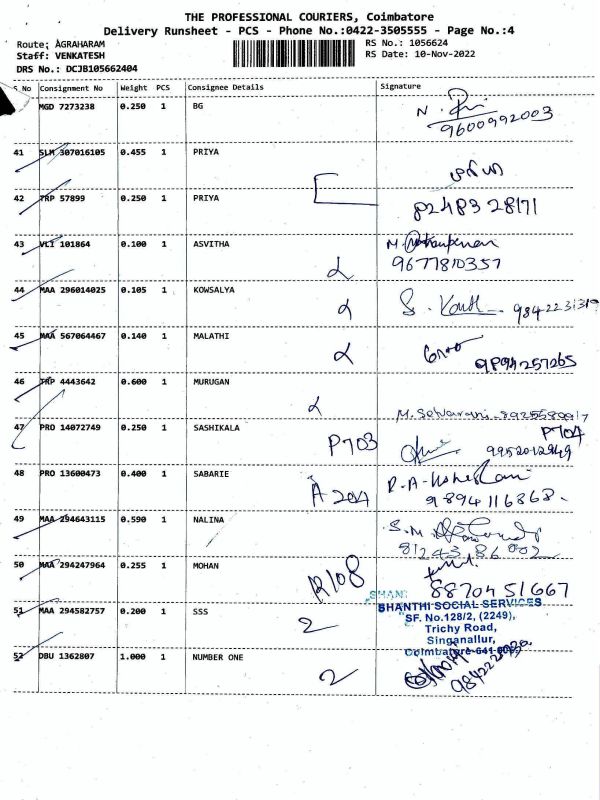 THE PROFESSIONAL COURIERS, Coimbatore
Delivery Runsheet - PCS - Phone No.:0422-3505555 - Page No.:4
Route: AGRAHARAM
RS No.: 1056624
Staff: VENKATESH
RS Date: 10-Nov-2022
DRS No.: DCJB105662404
S No Consignment No Weight PCS Consignee Details Signature
MGD 7273238 0.250 1 BG N.
9600992003
41 SLM 307016105 0.455 1 PRIYA பிரியா
42 TRP 57899 0.250 1 PRIYA 82483 28171
43 VLI 101864 0.100 1 ASVITHA M.
9677810357
44 MAA 296014025 0.105 1 KOWSALYA S.
45 MAA 567064467 0.140 1 MALATHI 9894257265
46 TRP 4443642 0.600 1 MURUGAN M. Selvarani
47 PRO 14072749 0.250 1 SASHIKALA P703 P704
48 PRO 13600473 0.400 1 SABARIE A 204 R.A.
9894116868.
49 MAA 294643115 0.590 1 NALINA S.M
81243 86002
50 MAA 294247964 0.255 1 MOHAN R108 88704 51667
51 MAA 294582757 0.200 1 SSS 2
SHANTHI SOCIAL SERVICES
SF. No.128/2, (2249),
Trichy Road,
Singanallur,
Coimbatore-641
52 DBU 1362807 1.000 1 NUMBER ONE 2